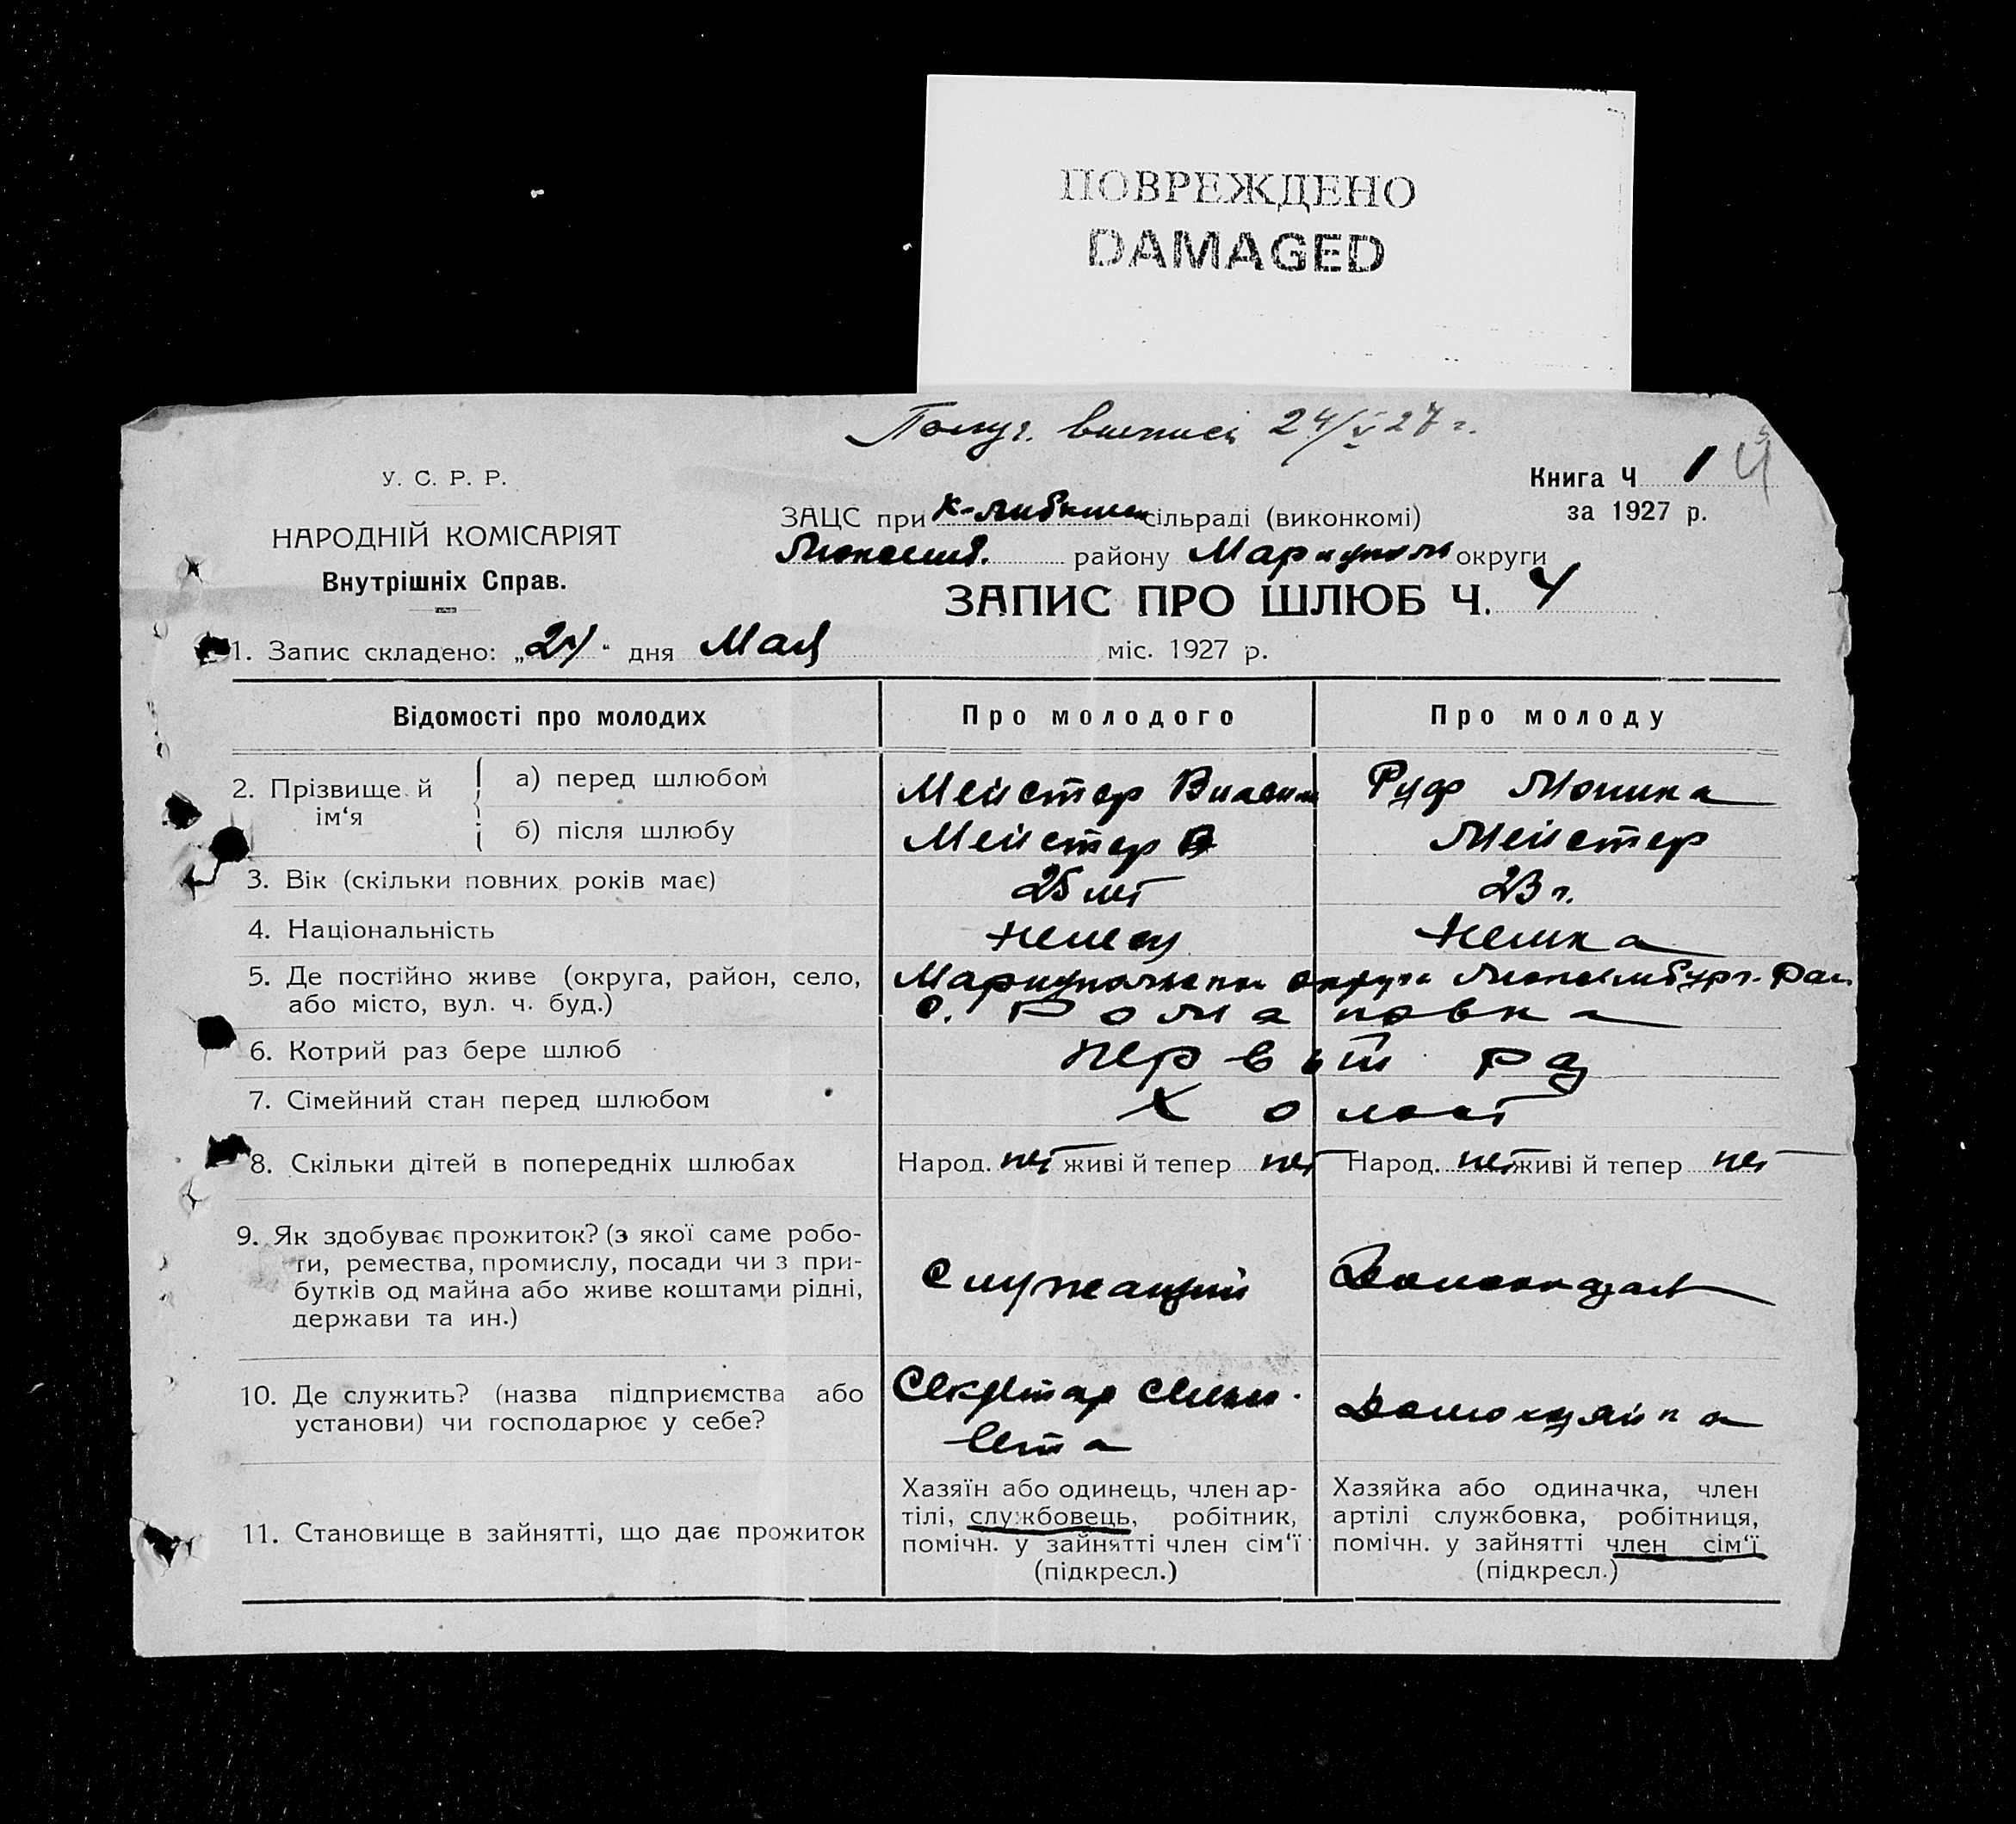 ПОВРЕЖДЕНО
DAMAGED
Получ. выписи 24/V 27 г.
У. С. Р. Р.
НАРОДНІЙ КОМІСАРІЯТ
Внутрішніх Справ.
Книга Ч 1
за 1927 р.
ЗАЦС при сільраді (виконкомі)
району Мариуполь округи
ЗАПИС ПРО ШЛЮБ Ч. 4
1. Запис складено: „24“ дня Мая міс. 1927 р.
Відомості про молодих
Про молодого
Про молоду
2. Прізвище й ім‘я
а) перед шлюбом
Мейстер Вильям
Руф Моника
б) після шлюбу
Мейстер В
Мейстер
3. Вік (скільки повних років має)
25 лет
23 г.
4. Національність
Немец
Немка
5. Де постійно живе (округа, район, село,
або місто, вул. ч. буд.)
Мариупольской округи Люксембург. Рай.
с. Романовка
6. Котрий раз бере шлюб
первый раз
7. Сімейний стан перед шлюбом
Холост
8. Скільки дітей в попередніх шлюбах
Народ. нет живі й тепер нет
Народ. нет живі й тепер нет
9. Як здобуває прожиток? (з якої саме робо-
ти, ремества, промислу, посади чи з при-
бутків од майна або живе коштами рідні,
держави та ин.)
Служащий
Домохозяй
10. Де служить? (назва підприємства або
установи) чи господарює у себе?
Секретар сель-
совета
Домохозяйка
11. Становище в зайнятті, що дає прожиток
Хазяїн або одинець, член ар-
тілі, службовець, робітник,
помічн. у зайнятті член сім‘ї
(підкресл.)
Хазяйка або одиначка, член
артілі службовка, робітниця,
помічн. у зайнятті член сім‘ї
(підкресл.)